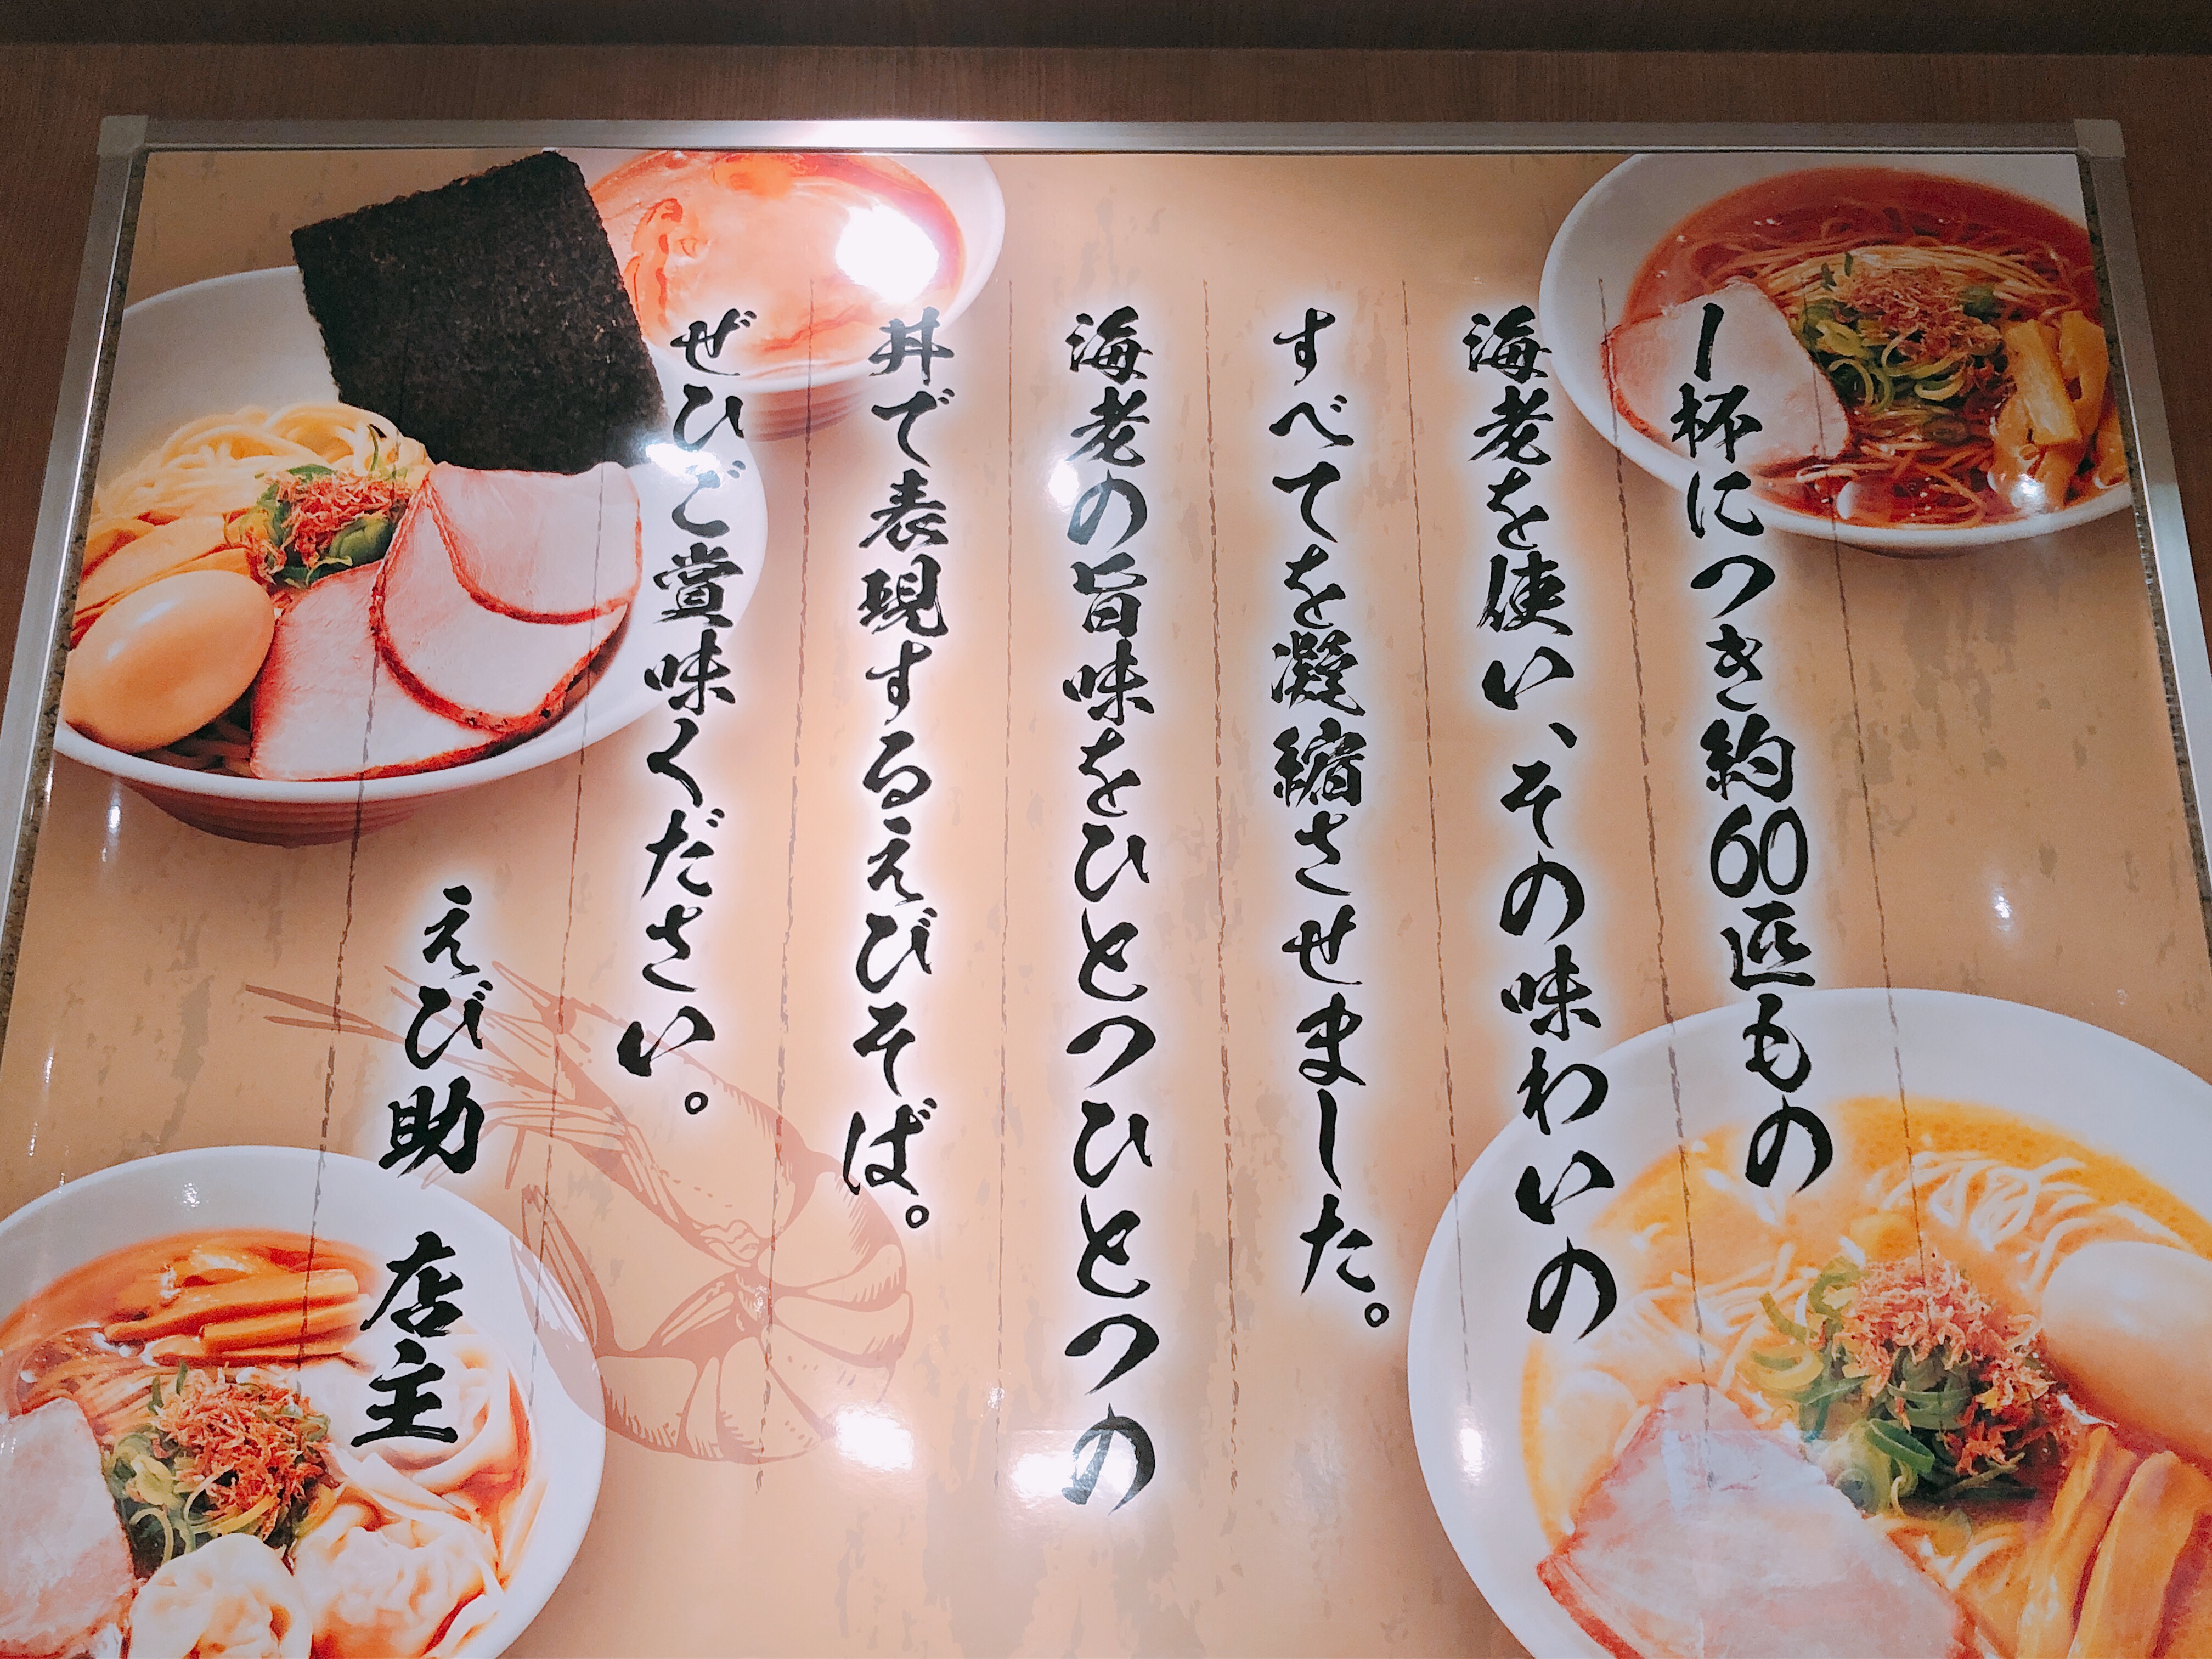 1杯につき約60匹もの
海老を使い、その味わいの
すべてを凝縮させました。
海老の旨味をひとつひとつの
丼で表現するえびそば。
ぜひご賞味ください。
えび助 店主